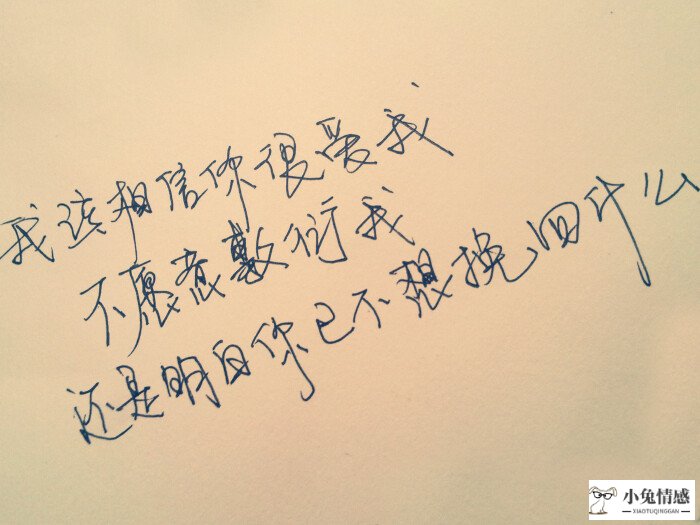 我该相信你很爱我
不愿意敷衍我
还是明白你已不想挽回什么
小兔情感
XIAOTUQINGGAN